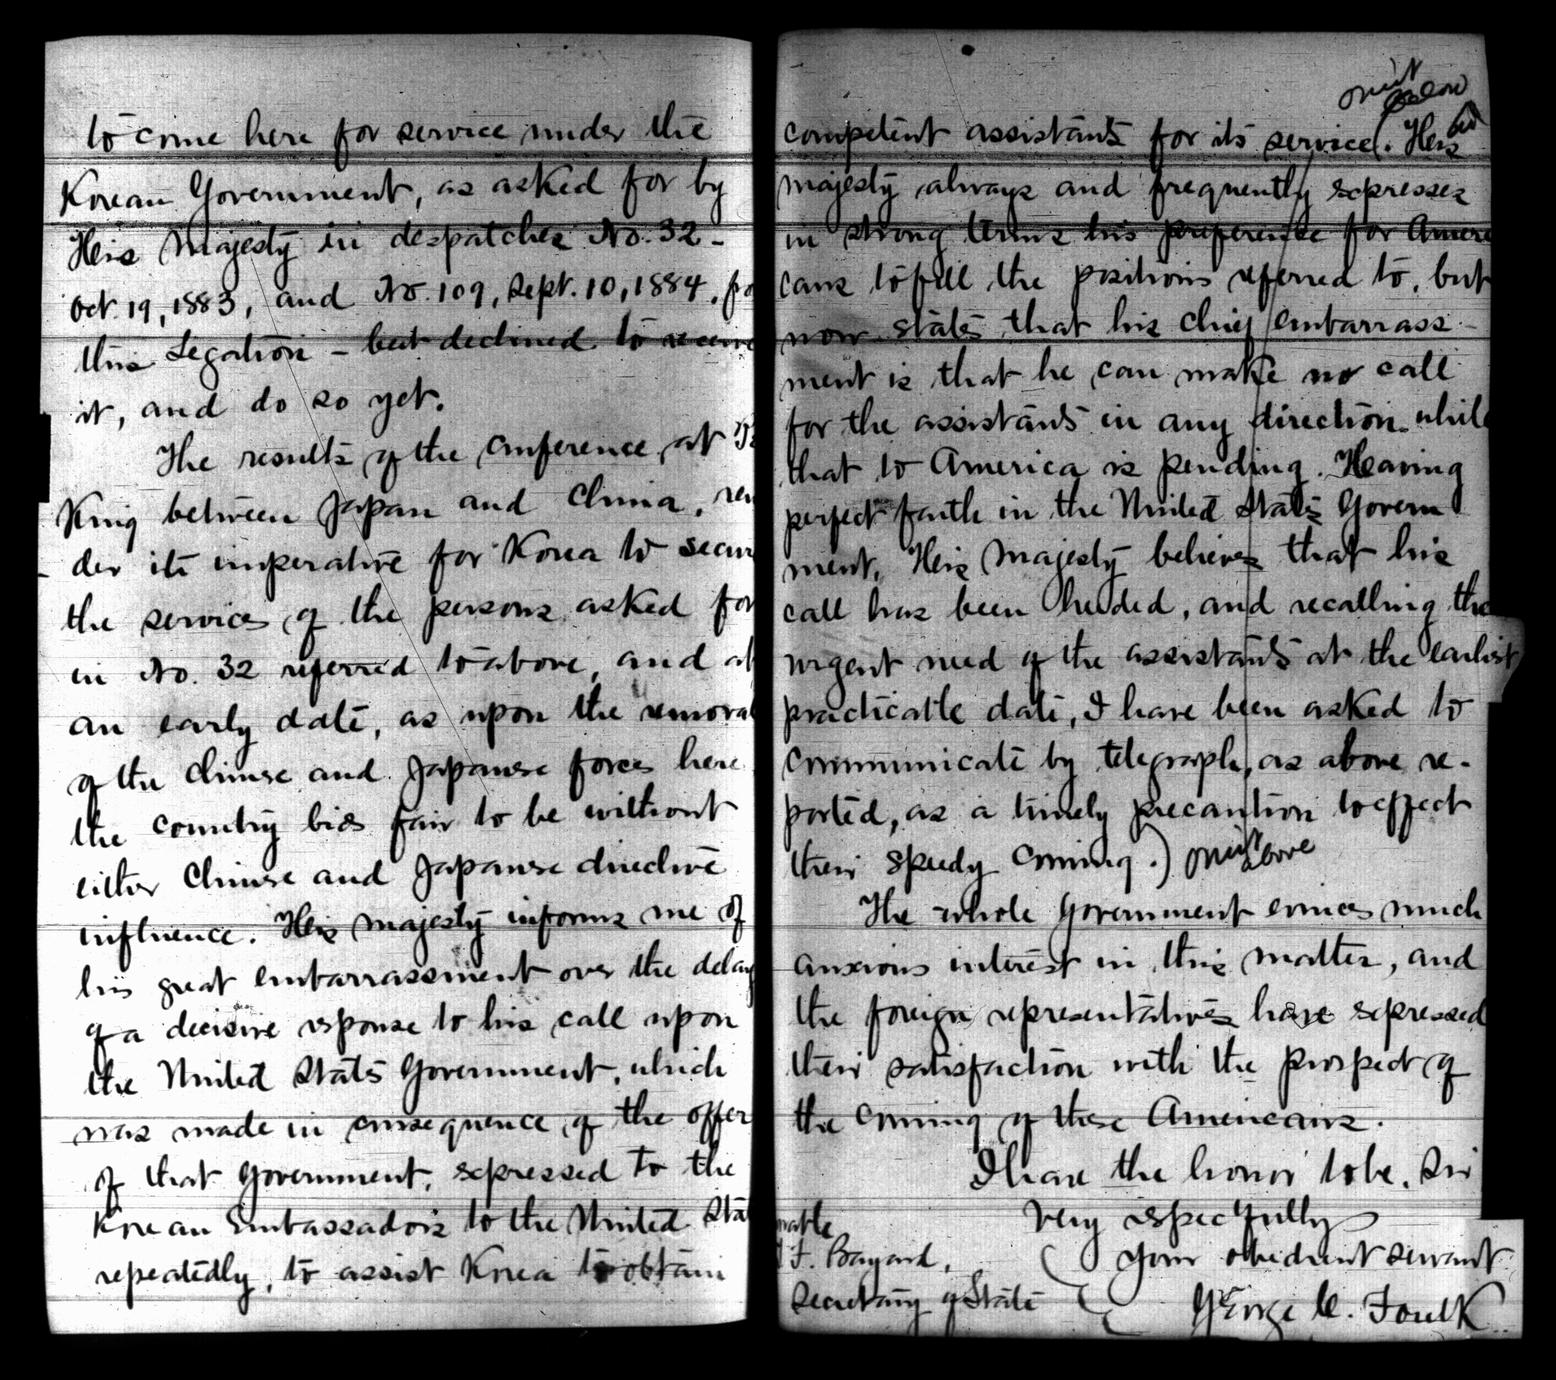 to come here for service under the
Korean Government, as asked for by
His Majesty in despatches No. 32 -
Oct. 19, 1883, and No. 109, Sept. 10, 1884, fro
this Legation - but declined to receive
it, and do so yet.
The results of the conference at Pe
King between Japan and China, ren
der it imperative for Korea to secur
the services of the persons asked for
in No. 32 referred to above, and at
an early date, as upon the removal
of the Chinese and Japanese forces here
the country bids fair to be without
either Chinese and Japanese directive
influence. His Majesty informs me of
his great embarrassment over the delay
of a decisive response to his call upon
the United States Government, which
was made in consequence of the offer
of that Government, expressed to the
Korean Embassadors to the United Sta
repeatedly, to assist Korea to obtain
omit
below
competent assistants for its service (. His
Majesty always and frequently expresses
in strong terms his preference for Ameri
cans to fill the positions referred to, but
now states that his chief embarrass-
ment is that he can make no call
for the assistants in any direction while
that to America is pending. Having
perfect faith in the United States Govern
ment, His Majesty believes that his
call has been heeded, and recalling the
urgent need of the assistants at the earliest
practicable date, I have been asked to
communicate by telegraph, as above re-
ported, as a timely precaution to effect
their speedy coming.) omit above
The whole Government evinces much
anxious interest in this matter, and
the foreign representatives have expressed
their satisfaction with the prospect of
the coming of these Americans.
I have the honor to be, Sir
Very respectfully
Your obedient servant
George C. Foulk
rable
F. Bayard,
Secretary of State